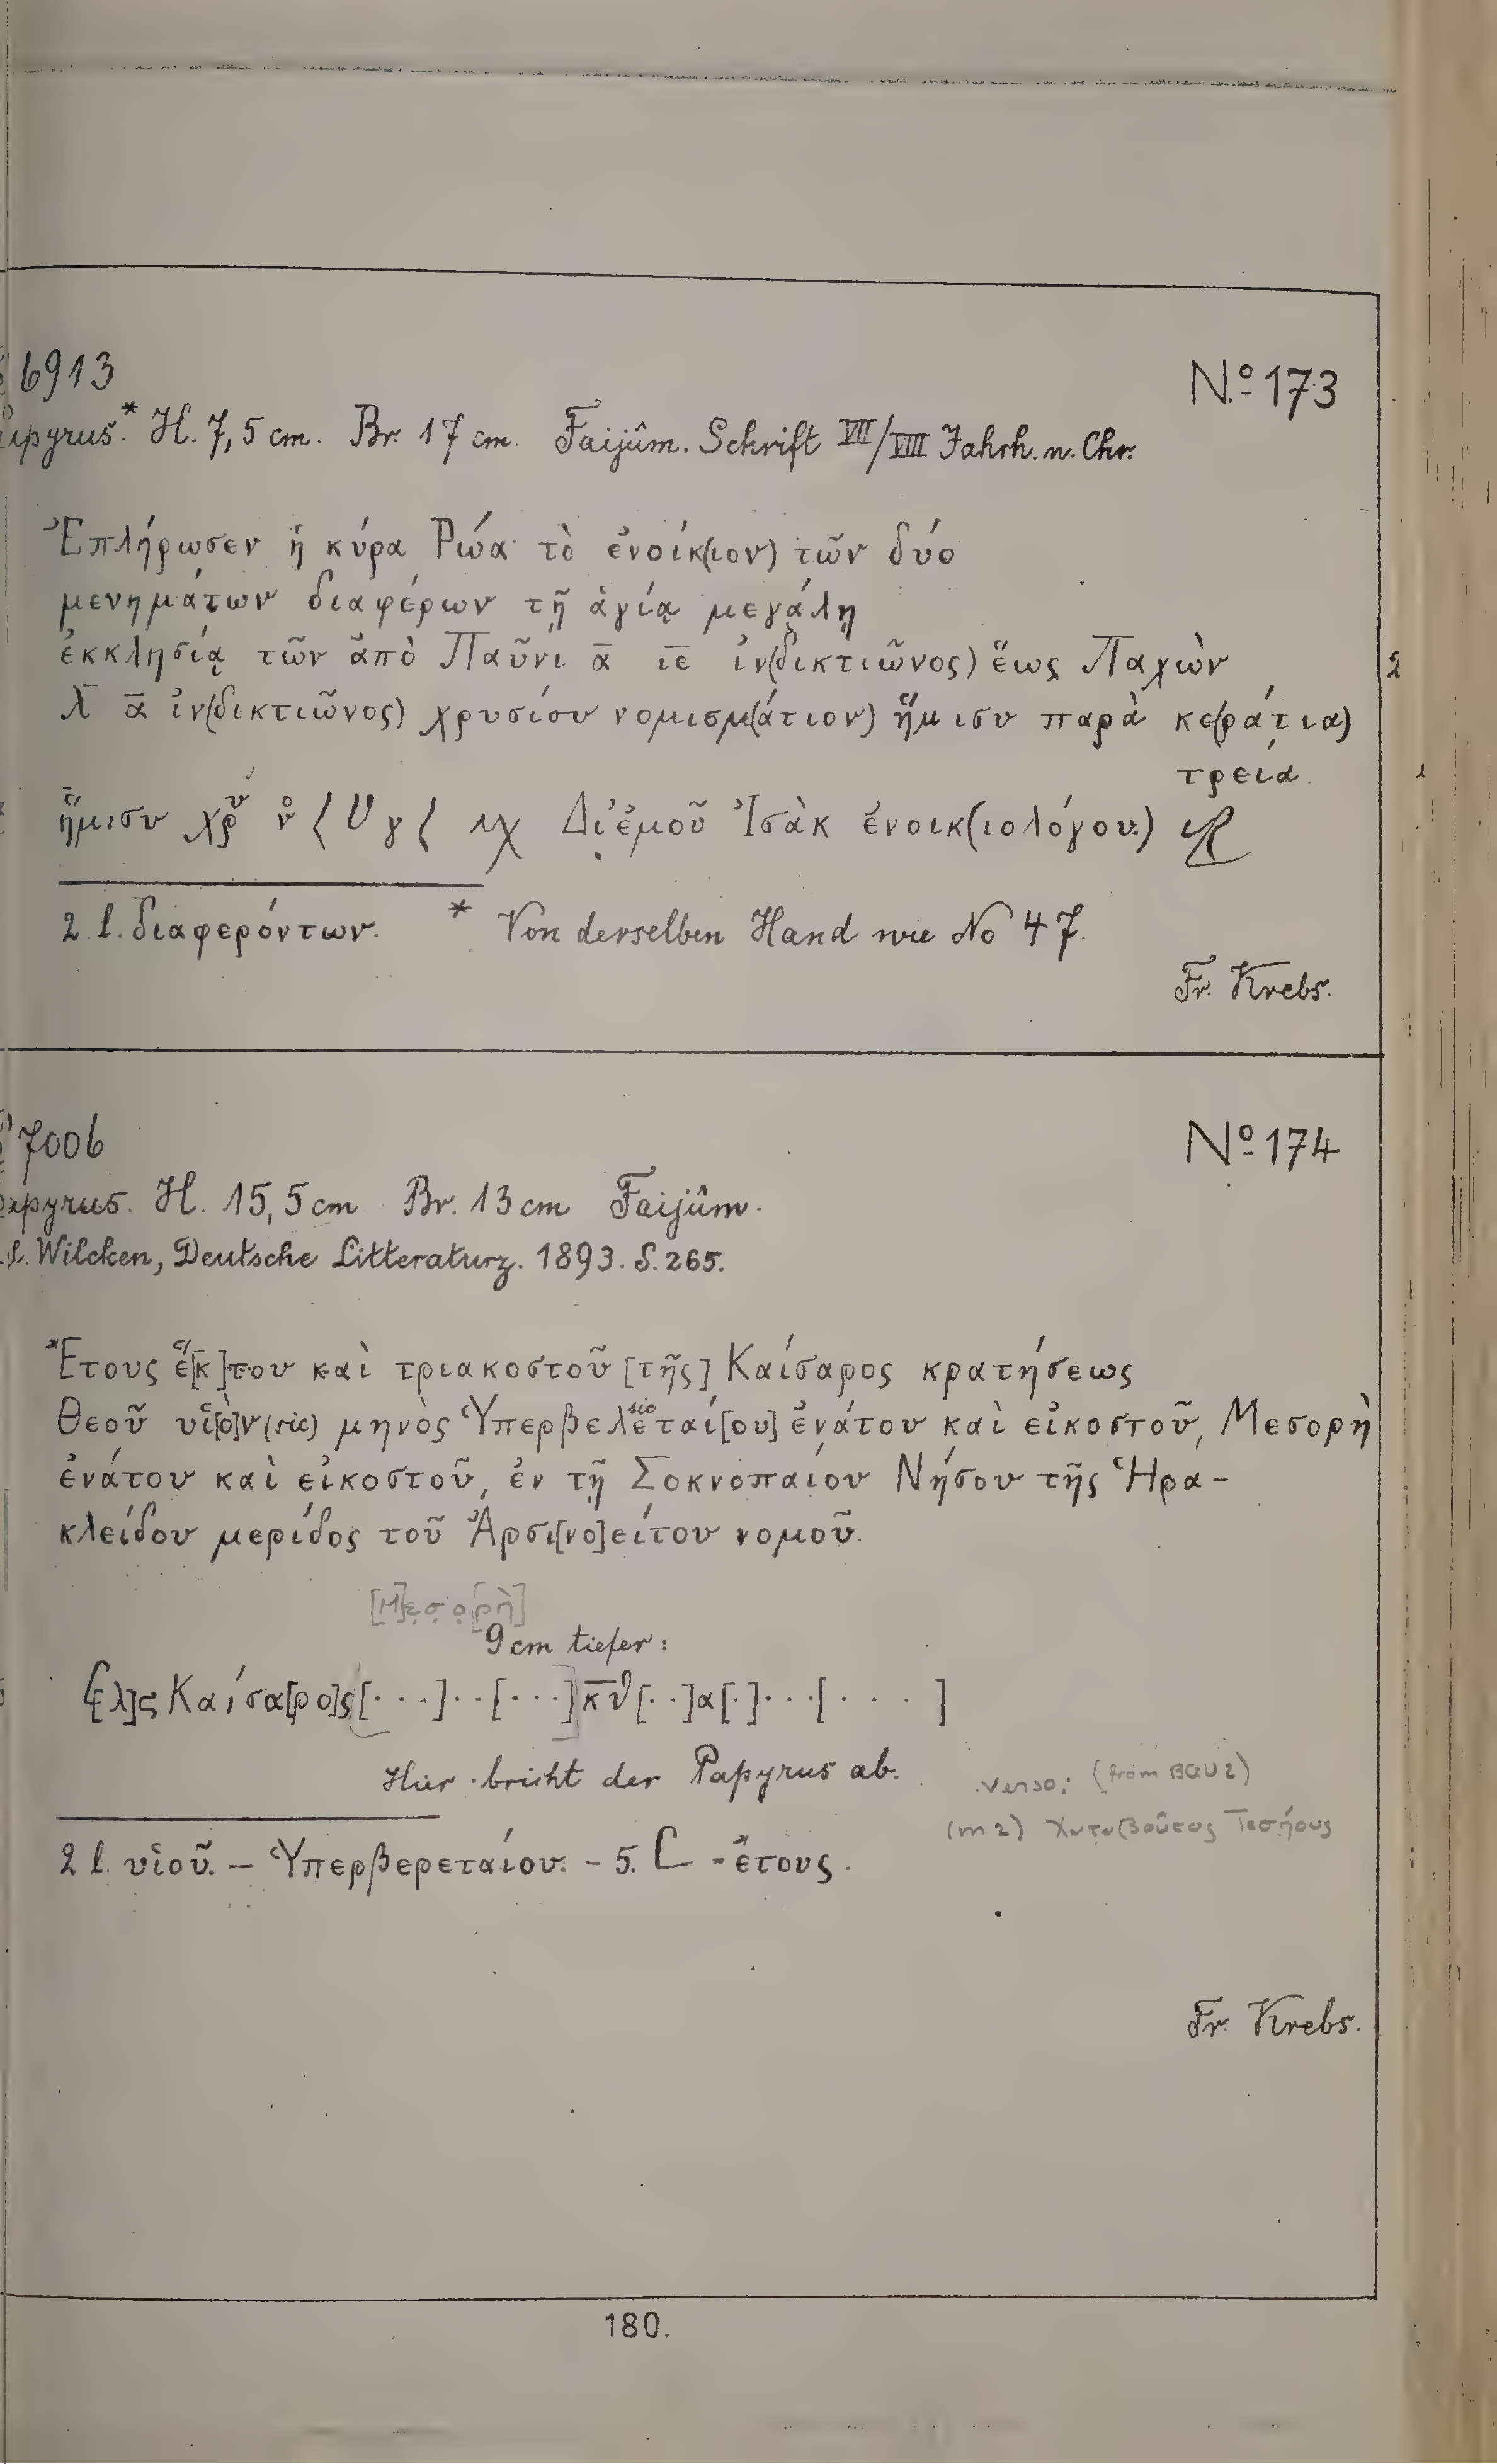 6913
N.º 173
Papyrus.* H. 7,5 cm. Br. 17 cm. Faijûm. Schrift VII/VIII Jahrh. n. Chr.
Ἐπλήρωσεν ἡ κύρα Ῥώα τὸ ἐνοίκ(ιον) τῶν δύο
μενημάτων διαφέρων τῇ ἁγίᾳ μεγάλῃ
ἐκκλησίᾳ τῶν ἀπὸ Παῦνι α̅ ι̅ε̅ ἰν(δικτιῶνος) ἕως Παχὼν
λ̅ α̅ ἰν(δικτιῶνος) χρυσίου νομισμ(άτιον) ἥμισυ παρὰ κε(ράτια)
τρεία
ἥμισυ Δι' ἐμοῦ Ἰσὰκ ἐνοικ(ιολόγου)
2. l. διαφερόντων. * Von derselben Hand wie No 47.
Fr. Krebs.
7006
Nº 174
Papyrus. H. 15,5 cm Br. 13 cm Faijûm.
l. Wilcken, Deutsche Litteraturz. 1893. S. 265.
Ἔτους ἕ[κ]του καὶ τριακοστοῦ [τῆς] Καίσαρος κρατήσεως
Θεοῦ υἱ[ὸ]ν (sic) μηνὸς Ὑπερβελεταί[ου] sic ἐνάτου καὶ εἰκοστοῦ, Μεσορὴ
ἐνάτου καὶ εἰκοστοῦ, ἐν τῇ Σοκνοπαίου Νήσου τῆς Ἡρα-
κλείδου μερίδος τοῦ Ἀρσι[νο]είτου νομοῦ.
[Μ]εσο[ρὴ]
9 cm tiefer:
[λ]ϛ Καίσα[ρο]ς [...]..[...] κ̅θ̅ [..]α[.]...[....]
Hier bricht der Papyrus ab.
Verso: (from BGU 2)
(m 2)
2 l. υἱοῦ. – Ὑπερβερεταίου. – 5. L = ἔτους.
Fr. Krebs.
180.